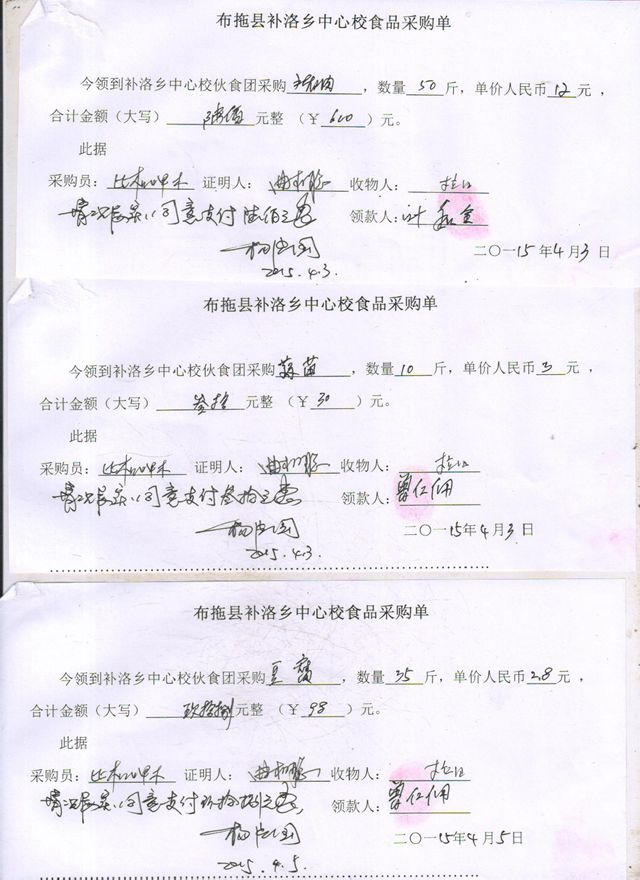 布拖县补洛乡中心校食品采购单
今领到补洛乡中心校伙食团采购，数量 50 斤，单价人民币 12 元，
合计金额（大写） 陆佰 元整 （￥ 600 ）元。
此据
采购员： 证明人： 收物人：
情况属实，同意支付陆佰元整 领款人：
二〇一15年4月3日
2015.4.3.
布拖县补洛乡中心校食品采购单
今领到补洛乡中心校伙食团采购 蒜苗 ，数量 10 斤，单价人民币 3 元，
合计金额（大写） 叁拾 元整 （￥ 30 ）元。
此据
采购员： 证明人： 收物人：
情况属实，同意支付叁拾元整 领款人： 曾仁俐
二〇一15年4月3日
2015.4.3.
布拖县补洛乡中心校食品采购单
今领到补洛乡中心校伙食团采购 豆腐 ，数量 35 斤，单价人民币 2.8 元，
合计金额（大写） 玖拾捌 元整 （￥ 98 ）元。
此据
采购员： 证明人： 收物人：
情况属实，同意支付玖拾捌元整 领款人： 曾仁俐
二〇一15年4月5日
2015.4.5.